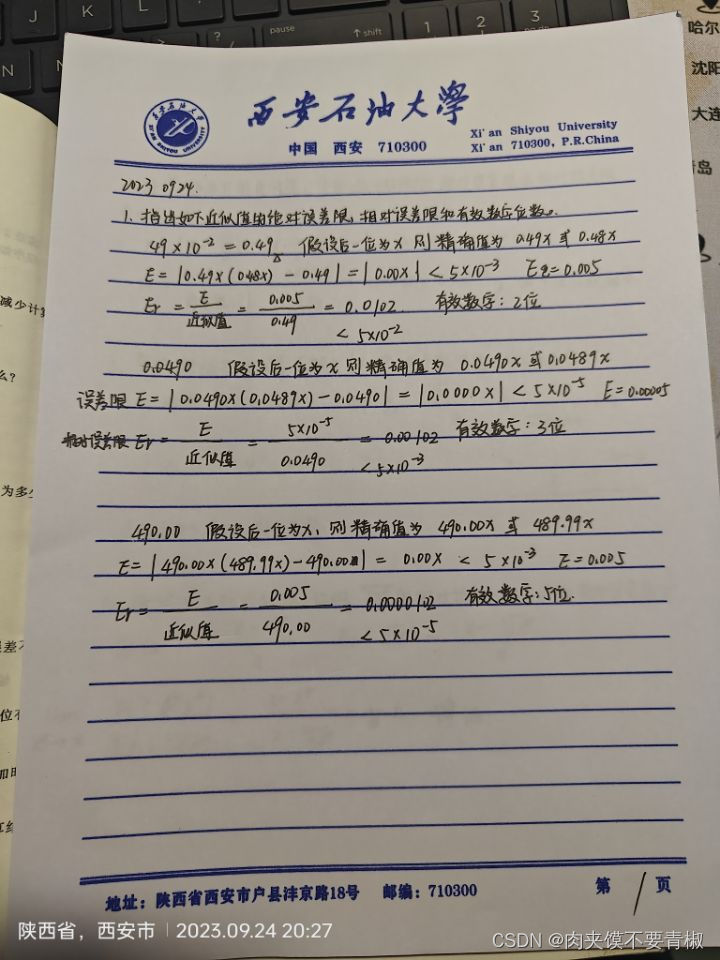 pause
shift
1
2
3
N
N
哈尔
沈阳
大连
岛
减少计算
么?
为多少
误差不
位有
西安石油大學
中国 西安 710300
Xi'an Shiyou University
Xi'an 710300, P.R.China
2023 0924.
1. 指出如下近似值的绝对误差限,相对误差限和有效数字位数。
49×10⁻² = 0.49, 假设后一位为x 则精确值为 0.49x 或 0.48x
E = |0.49x(0.48x) - 0.49| = |0.00x| < 5×10⁻³ E=0.005
Er = E/近似值 = 0.005/0.49 = 0.0102 有效数字: 2位
< 5×10⁻²
0.0490 假设后一位为x 则精确值为 0.0490x 或 0.0489x
误差限 E = |0.0490x(0.0489x) - 0.0490| = |0.0000x| < 5×10⁻⁵ E=0.00005
相对误差限 Er = E/近似值 = 5×10⁻⁵/0.0490 = 0.00102 有效数字: 3位
< 5×10⁻³
490.00 假设后一位为x, 则精确值为 490.00x 或 489.99x
E = |490.00x(489.99x) - 490.00| = 0.00x < 5×10⁻³ E=0.005
Er = E/近似值 = 0.005/490.00 = 0.0000102 有效数字: 5位.
< 5×10⁻⁵
地址:陕西省西安市户县沣京路18号 邮编:710300 第 1 页
陕西省,西安市 | 2023.09.24 20:27
CSDN @肉夹馍不要青椒